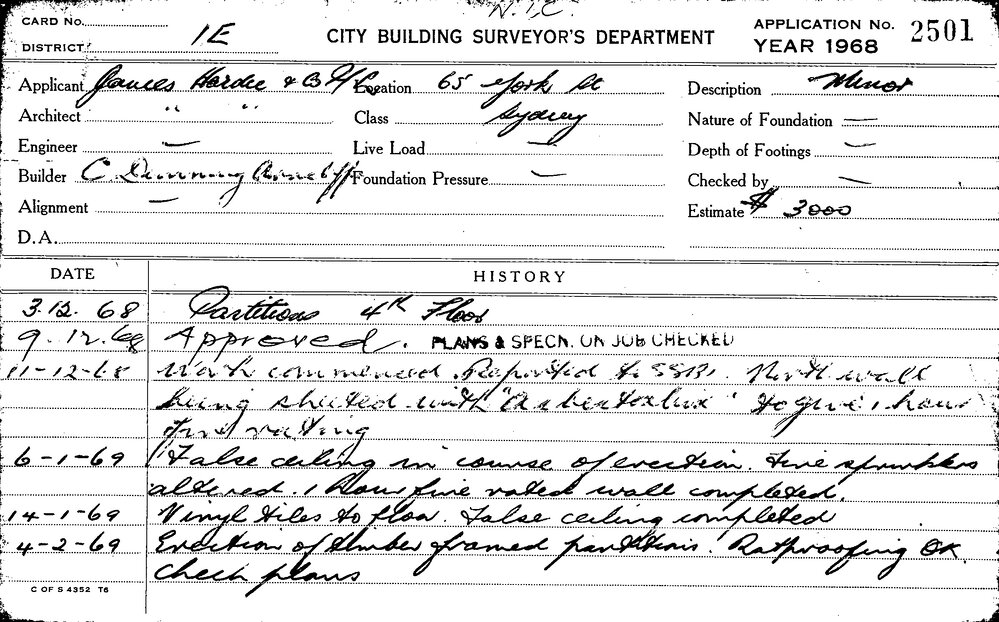 N.I.C.
CARD No.
DISTRICT 1E
CITY BUILDING SURVEYOR'S DEPARTMENT
APPLICATION No. 2501
YEAR 1968
Applicant James Hardie & Location 65 York St Description Minor
Architect " " Class Sydney Nature of Foundation —
Engineer — Live Load — Depth of Footings —
Builder C. Dunning Arncliffe Foundation Pressure — Checked by —
Alignment — Estimate $ 3000
D.A.
DATE HISTORY
3.12.68 Partitions 4th Floor
9.12.68 Approved. PLANS & SPECN. ON JOB CHECKED
11-12-68 Work commenced. Reported to SSB. North wall
being sheeted with "Asbestolux" to give 1 hour
fire rating
6-1-69 False ceiling in course of erection. Fire sprinklers
altered. 1 Hour fire rated wall completed.
14-1-69 Vinyl tiles to floor. False ceiling completed
4-2-69 Erection of timber framed partitions. Ratproofing OK
check plans
C OF S 4352 T6